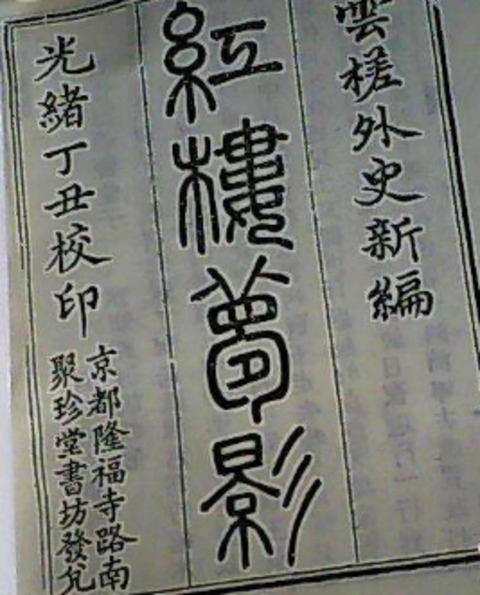 雲槎外史新編
紅樓夢影
光緒丁丑校印
京都隆福寺路南
聚珍堂書坊發兌